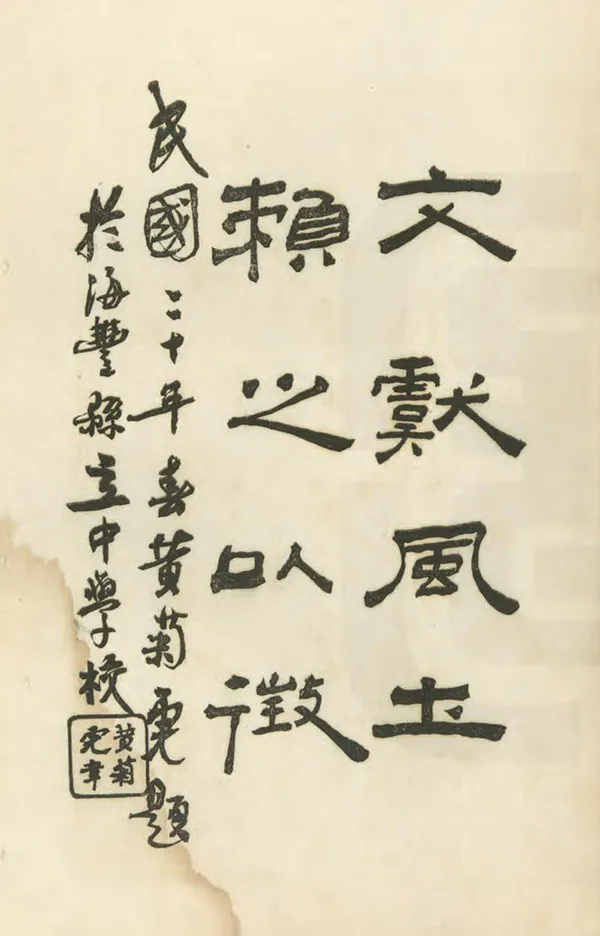 文獻風土
賴之以徵
民國二十年春黃菊霓題
於海豐縣立中學校
黃菊
霓章